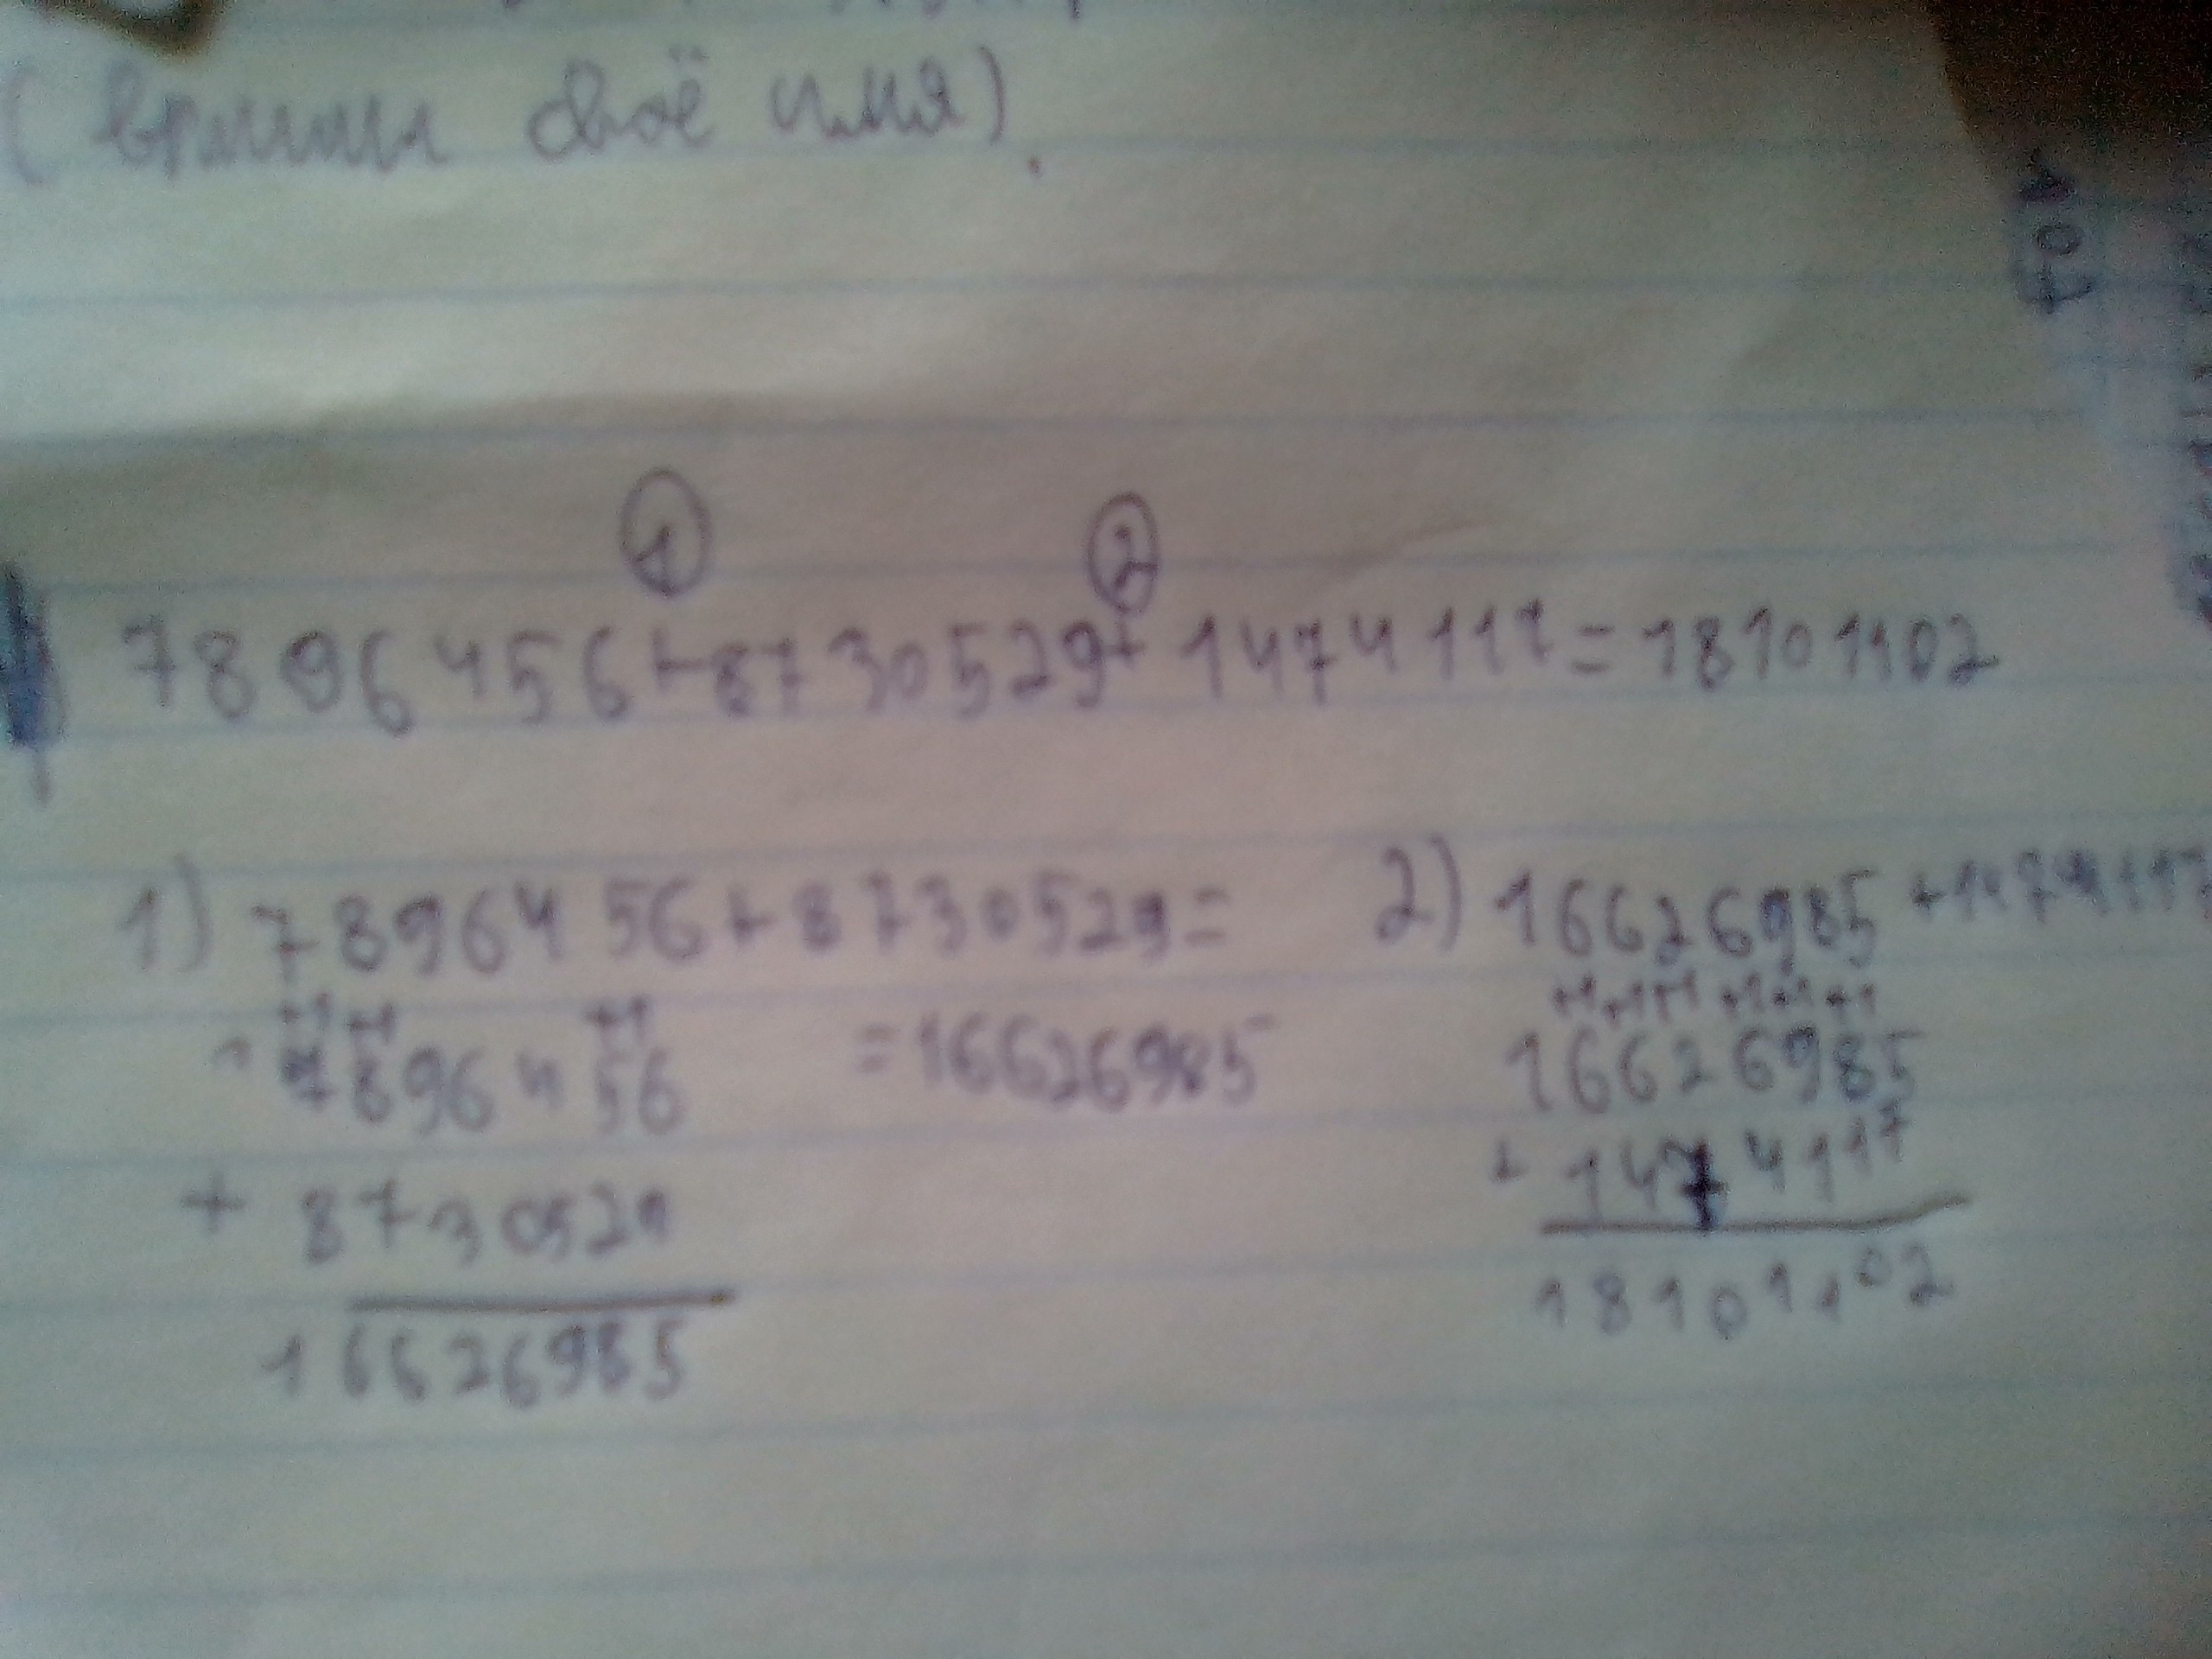 ( впиши своё имя).
107
1 2
7896456+8730529+1474117=18101102
1) 7896456+8730529=
=16626985
+1 +1 +1
7896456
+ 8730529
16626985
2) 16626985+1474117
+1 +1 +1 +1 +1 +1
16626985
+ 1474117
18101102